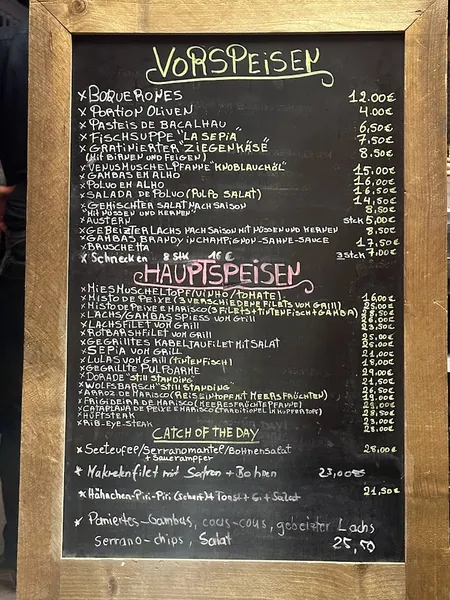 VORSPEISEN
x BOQUERONES 12.00€
x PORTION OLIVEN 4.00€
x PASTEIS DE BACALHAU 6,50€
x FISCHSUPPE "LA SEPIA" 7,50€
x GRATINIERTER "ZIEGENKÄSE" 8.50€
(MIT BIRNEN UND FEIGEN)
x VENUSMUSCHELPFANNE "KNOBLAUCHÖL" 15,00€
x GAMBAS EM ALHO 16,00€
x POLVO EM ALHO 16,50€
x SALADA DE POLVO (PULPO SALAT) 14,50€
x GEMISCHTER SALAT NACH SAISON 8,50€
"MIT NÜSSEN UND KERNEN"
x AUSTERN Stck 5,00€
x GEBEIZTER LACHS NACH SAISON MIT NÜSSEN UND KERNEN 8,50€
x GAMBAS BRANDY IN CHAMPIGNON-SAHNE-SAUCE 17,50€
x BRUSCHETTA 3 Stck 7,00€
x Schnecken 8 Stk 16 €
HAUPTSPEISEN
x MIESMUSCHELTOPF (VINHO/TOMATE) 16,00€
x MISTO DE PEIXE (3 VERSCHIEDENE FILETS VOM GRILL) 25,00€
x MISTO DE PEIXE E MARISCO (3 FILETS+TINTENFISCH+GAMBA)
x LACHS/GAMBAS SPIESS VOM GRILL
x LACHSFILET VOM GRILL 23,50€
x ROTBARSHFILET VOM GRILL
x GEGRILLTES KABELJAUFILET MIT SALAT
x SEPIA VOM GRILL 21,00€
x LULAS VOM GRILL (TINTENFISCH)
x GEGRILLTE PULPOARME 29.00€
x DORADE "STILL STANDING" 21,50€
x WOLFSBARSCH "STILL STANDING"
x ARROZ DE MARISCO (REISEINTOPF MIT MEERSFRÜCHTEN)
x FRIGIDEIRA DE MARISCO (MEERESFRÜCHTEPFANNE)
x CATAPLANA DE PEIXE E MARISCO (TRADITIONEL IM KUPFERTOPF)
x HÜFTSTEAK
x RIB-EYE-STEAK 28.00€
CATCH OF THE DAY
x Seeteufee/Serranomantel/Bohnensalat 28,00€
+ Sauerampfer
x Makrelenfilet mit Safran + Bohnen 23,00€
x Hähnchen-Piri-Piri (Scharf) + Salat 21,50€
x Paniertes-Gambas, cous-cous, gebeizter Lachs
Serrano-chips, Salat 25,50